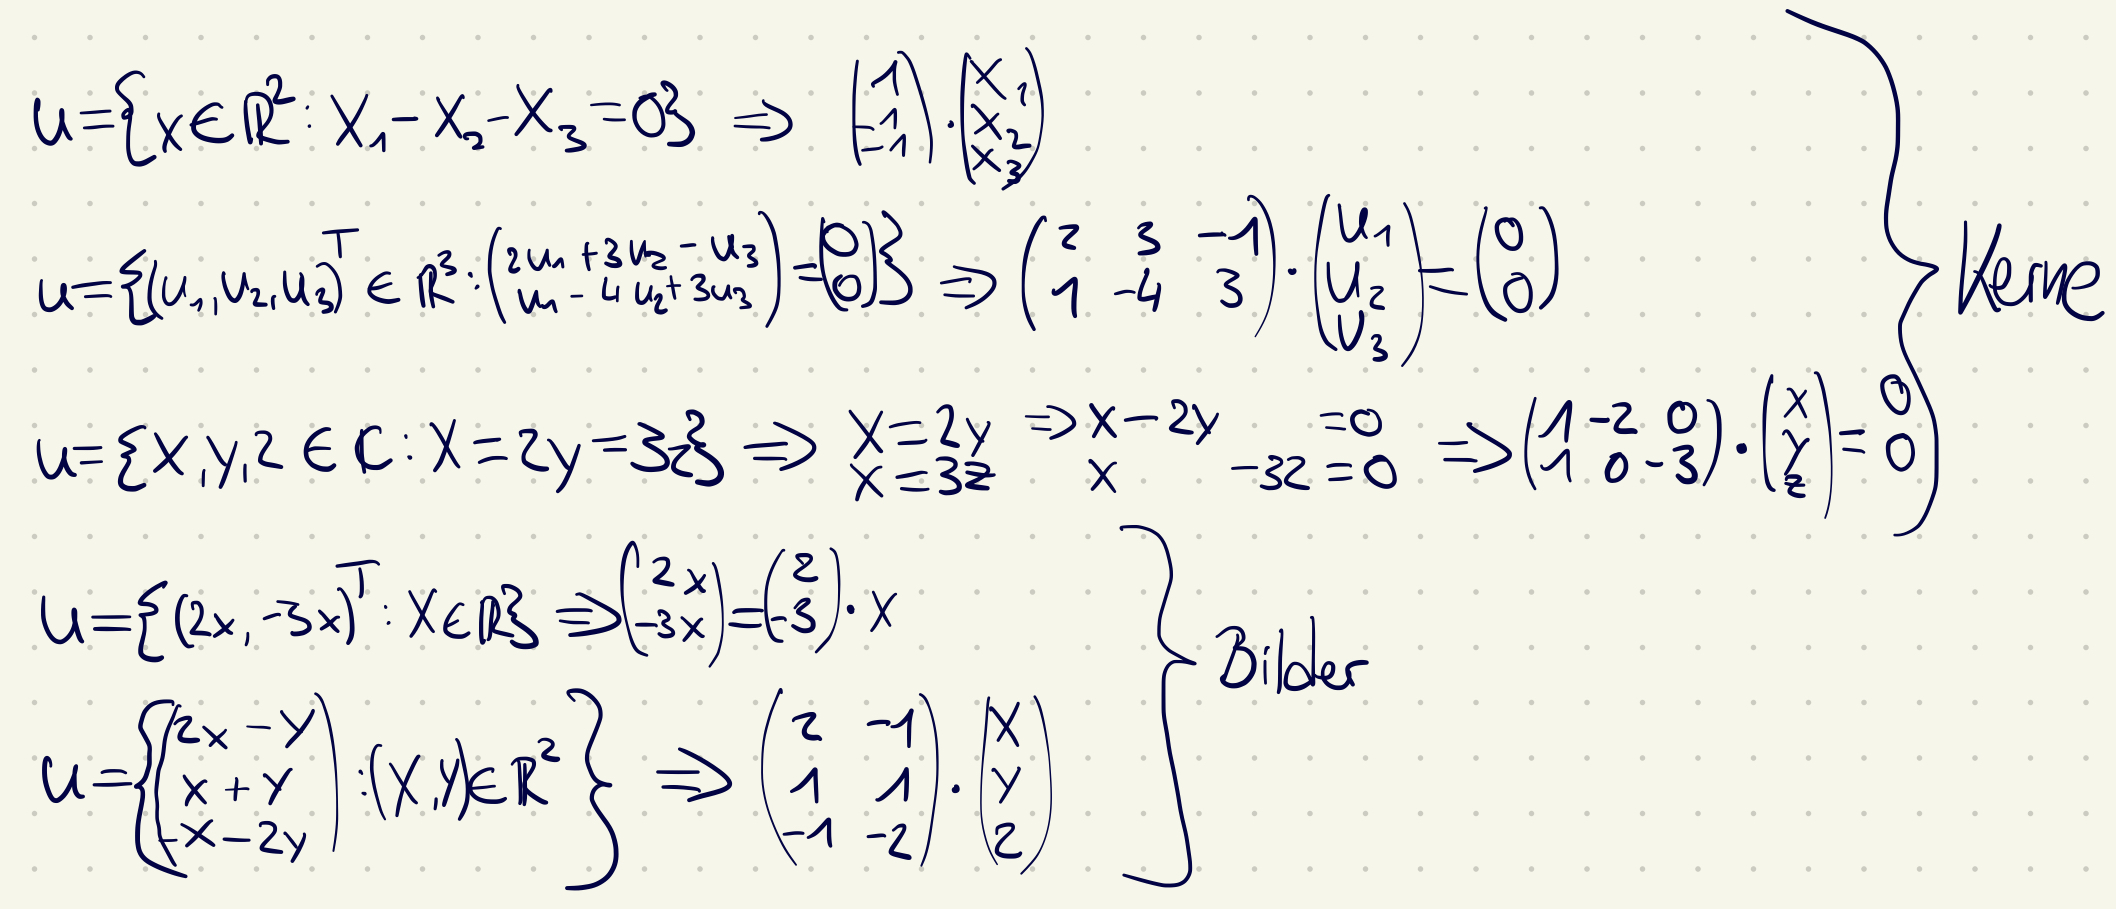 U={x∈ℝ²: x₁-x₂-x₃=0} ⇒ (1 -1 -1)·(x₁ x₂ x₃)
U={(u₁,u₂,u₃)ᵀ∈ℝ³: (2u₁+3u₂-u₃ u₁-4u₂+3u₃)=(0 0)} ⇒ (2 3 -1 1 -4 3)·(u₁ u₂ u₃)=(0 0)
U={x,y,z∈ℂ: x=2y=3z} ⇒ x=2y x=3z ⇒ x-2y =0 x -3z=0 ⇒ (1 -2 0 1 0 -3)·(x y z)= 0 0
Kerne
U={(2x,-3x)ᵀ: x∈ℝ} ⇒ (2x -3x)=(2 -3)·x
U={(2x-y x+y -x-2y):(x,y)∈ℝ²} ⇒ (2 -1 1 1 -1 -2)·(x y z)
Bilder